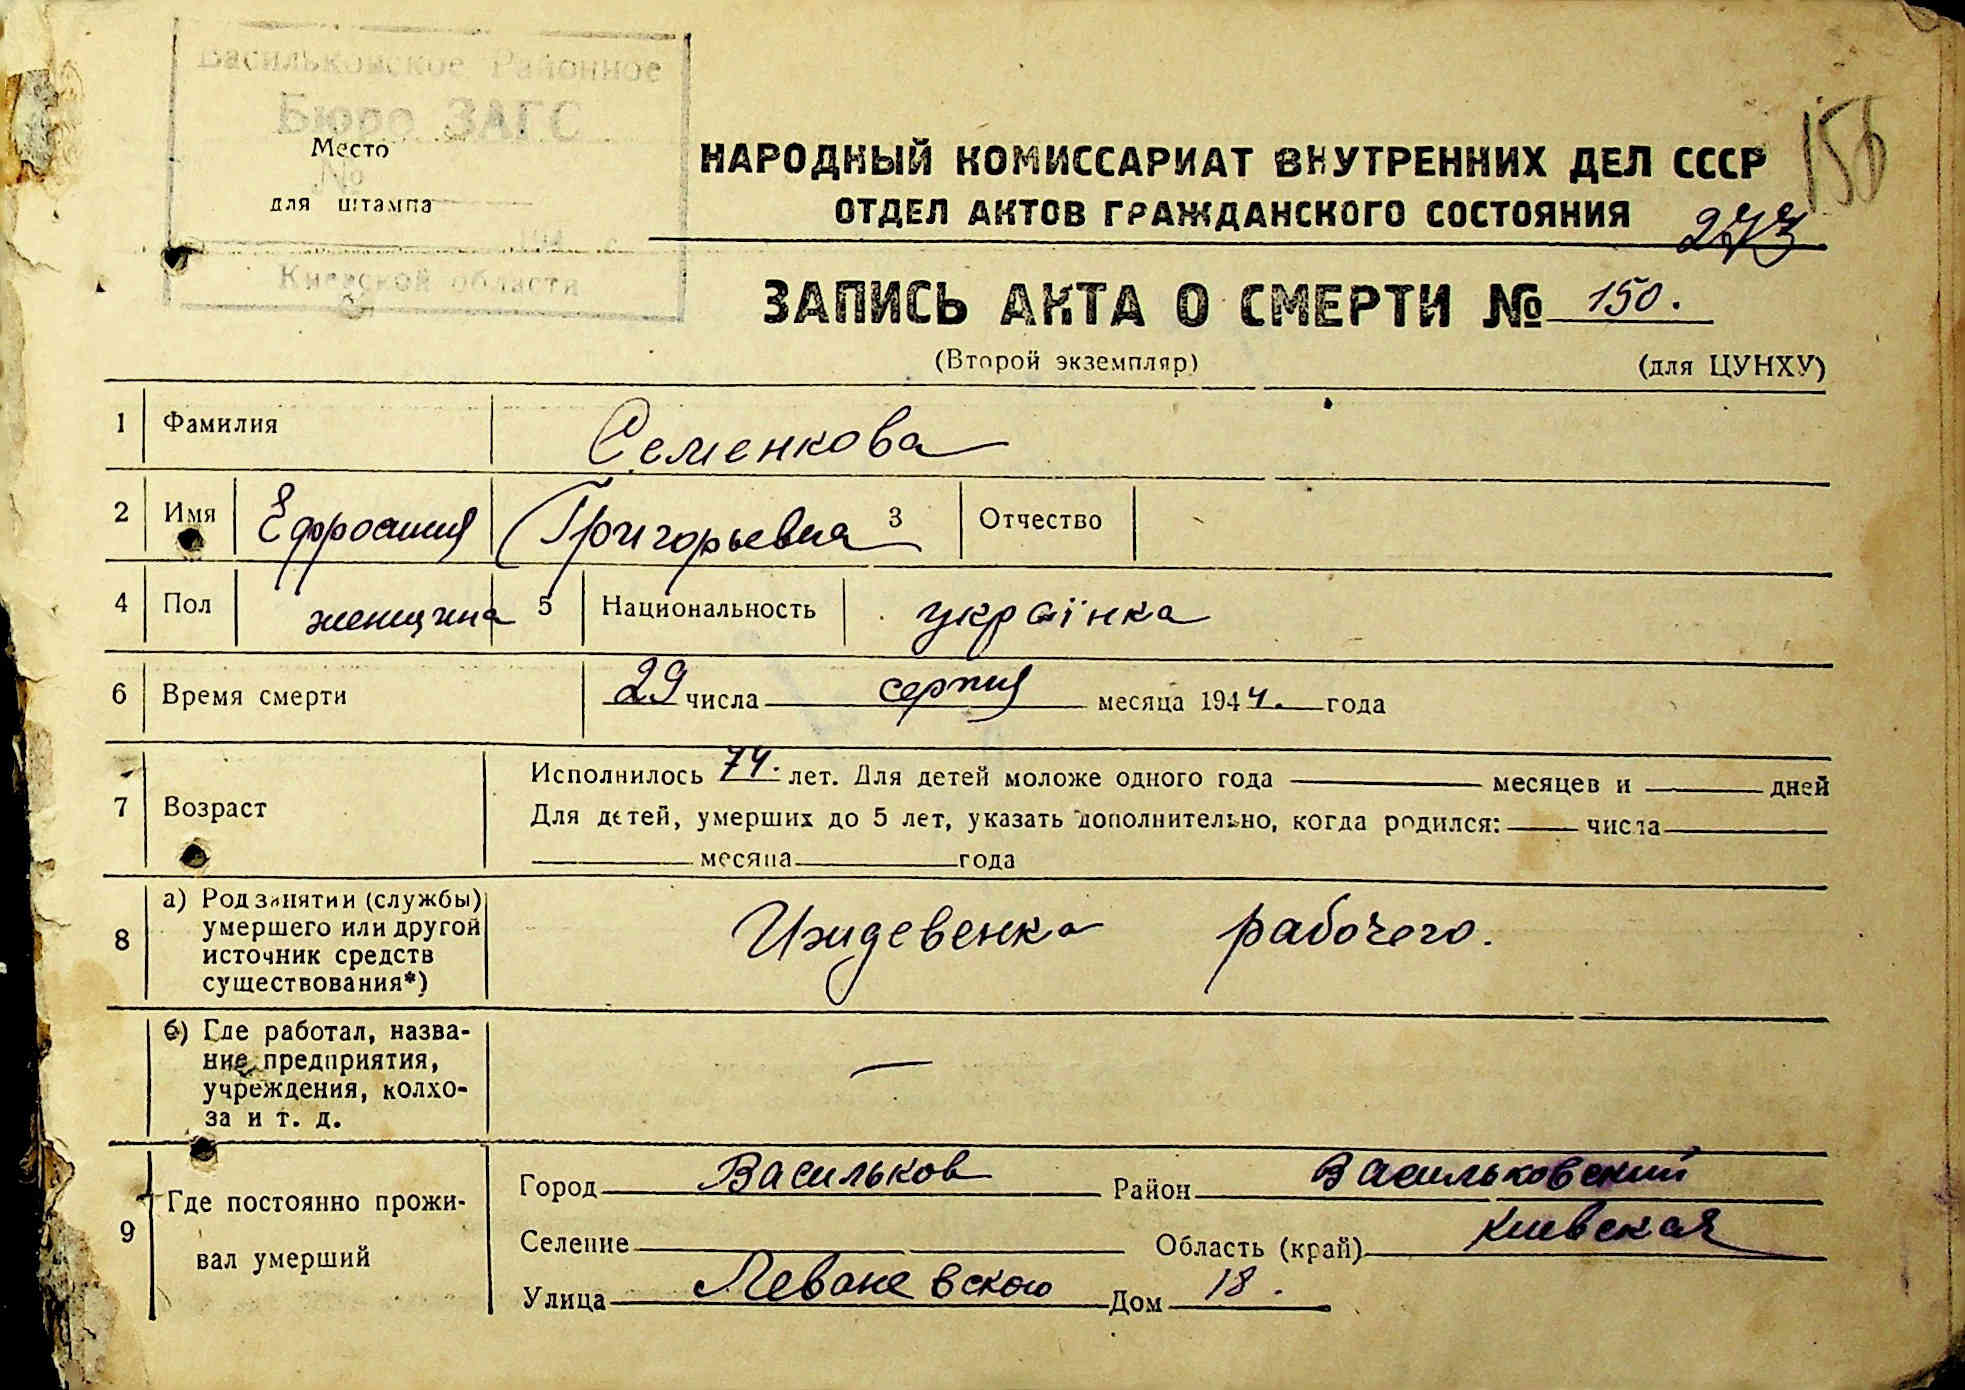 Васильковское Районное
Бюро ЗАГС
Место
№
для штампа
Киевской области
156
НАРОДНЫЙ КОМИССАРИАТ ВНУТРЕННИХ ДЕЛ СССР
ОТДЕЛ АКТОВ ГРАЖДАНСКОГО СОСТОЯНИЯ
273
ЗАПИСЬ АКТА О СМЕРТИ № 150.
(Второй экземпляр) (для ЦУНХУ)
1 Фамилия Семенкова
2 Имя Ефросиния Григорьевна 3 Отчество
4 Пол женщина 5 Национальность українка
6 Время смерти 29 числа серпня месяца 1944. года
7 Возраст
Исполнилось 74. лет. Для детей моложе одного года месяцев и дней
Для детей, умерших до 5 лет, указать дополнительно, когда родился: числа
месяца года
8 а) Род занятии (службы) умершего или другой источник средств существования*) Иждевенка рабочего.
б) Где работал, назва-
ние предприятия,
учреждения, колхо-
за и т. д. —
9 Где постоянно прожи-
вал умерший
Город Васильков Район Васильковский
Селение Область (край) Киевская
Улица Леваневского Дом 18.